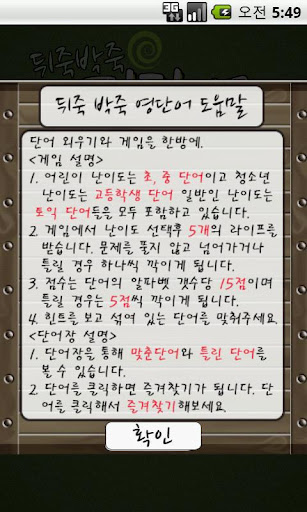 3G 오전 5:49
뒤죽박죽
뒤죽 박죽 영단어 도움말
단어 외우기와 게임을 한방에.
<게임 설명>
1. 어린이 난이도는 초, 중 단어이고 청소년
난이도는 고등학생 단어 일반인 난이도는
토익 단어등을 모두 포함하고 있습니다.
2. 게임에서 난이도 선택후 5개의 라이프를
받습니다. 문제를 풀지 않고 넘어가거나
틀릴 경우 하나씩 깍이게 됩니다.
3. 점수는 단어의 알파벳 갯수당 15점이며
틀릴 경우는 5점씩 깍이게 됩니다.
4. 힌트를 보고 섞여 있는 단어를 맞춰주세요.
<단어장 설명>
1. 단어장을 통해 맞춘단어와 틀린 단어를
볼 수 있습니다.
2. 단어를 클릭하면 즐겨찾기가 됩니다. 단
어를 클릭해서 즐겨찾기해보세요.
확인